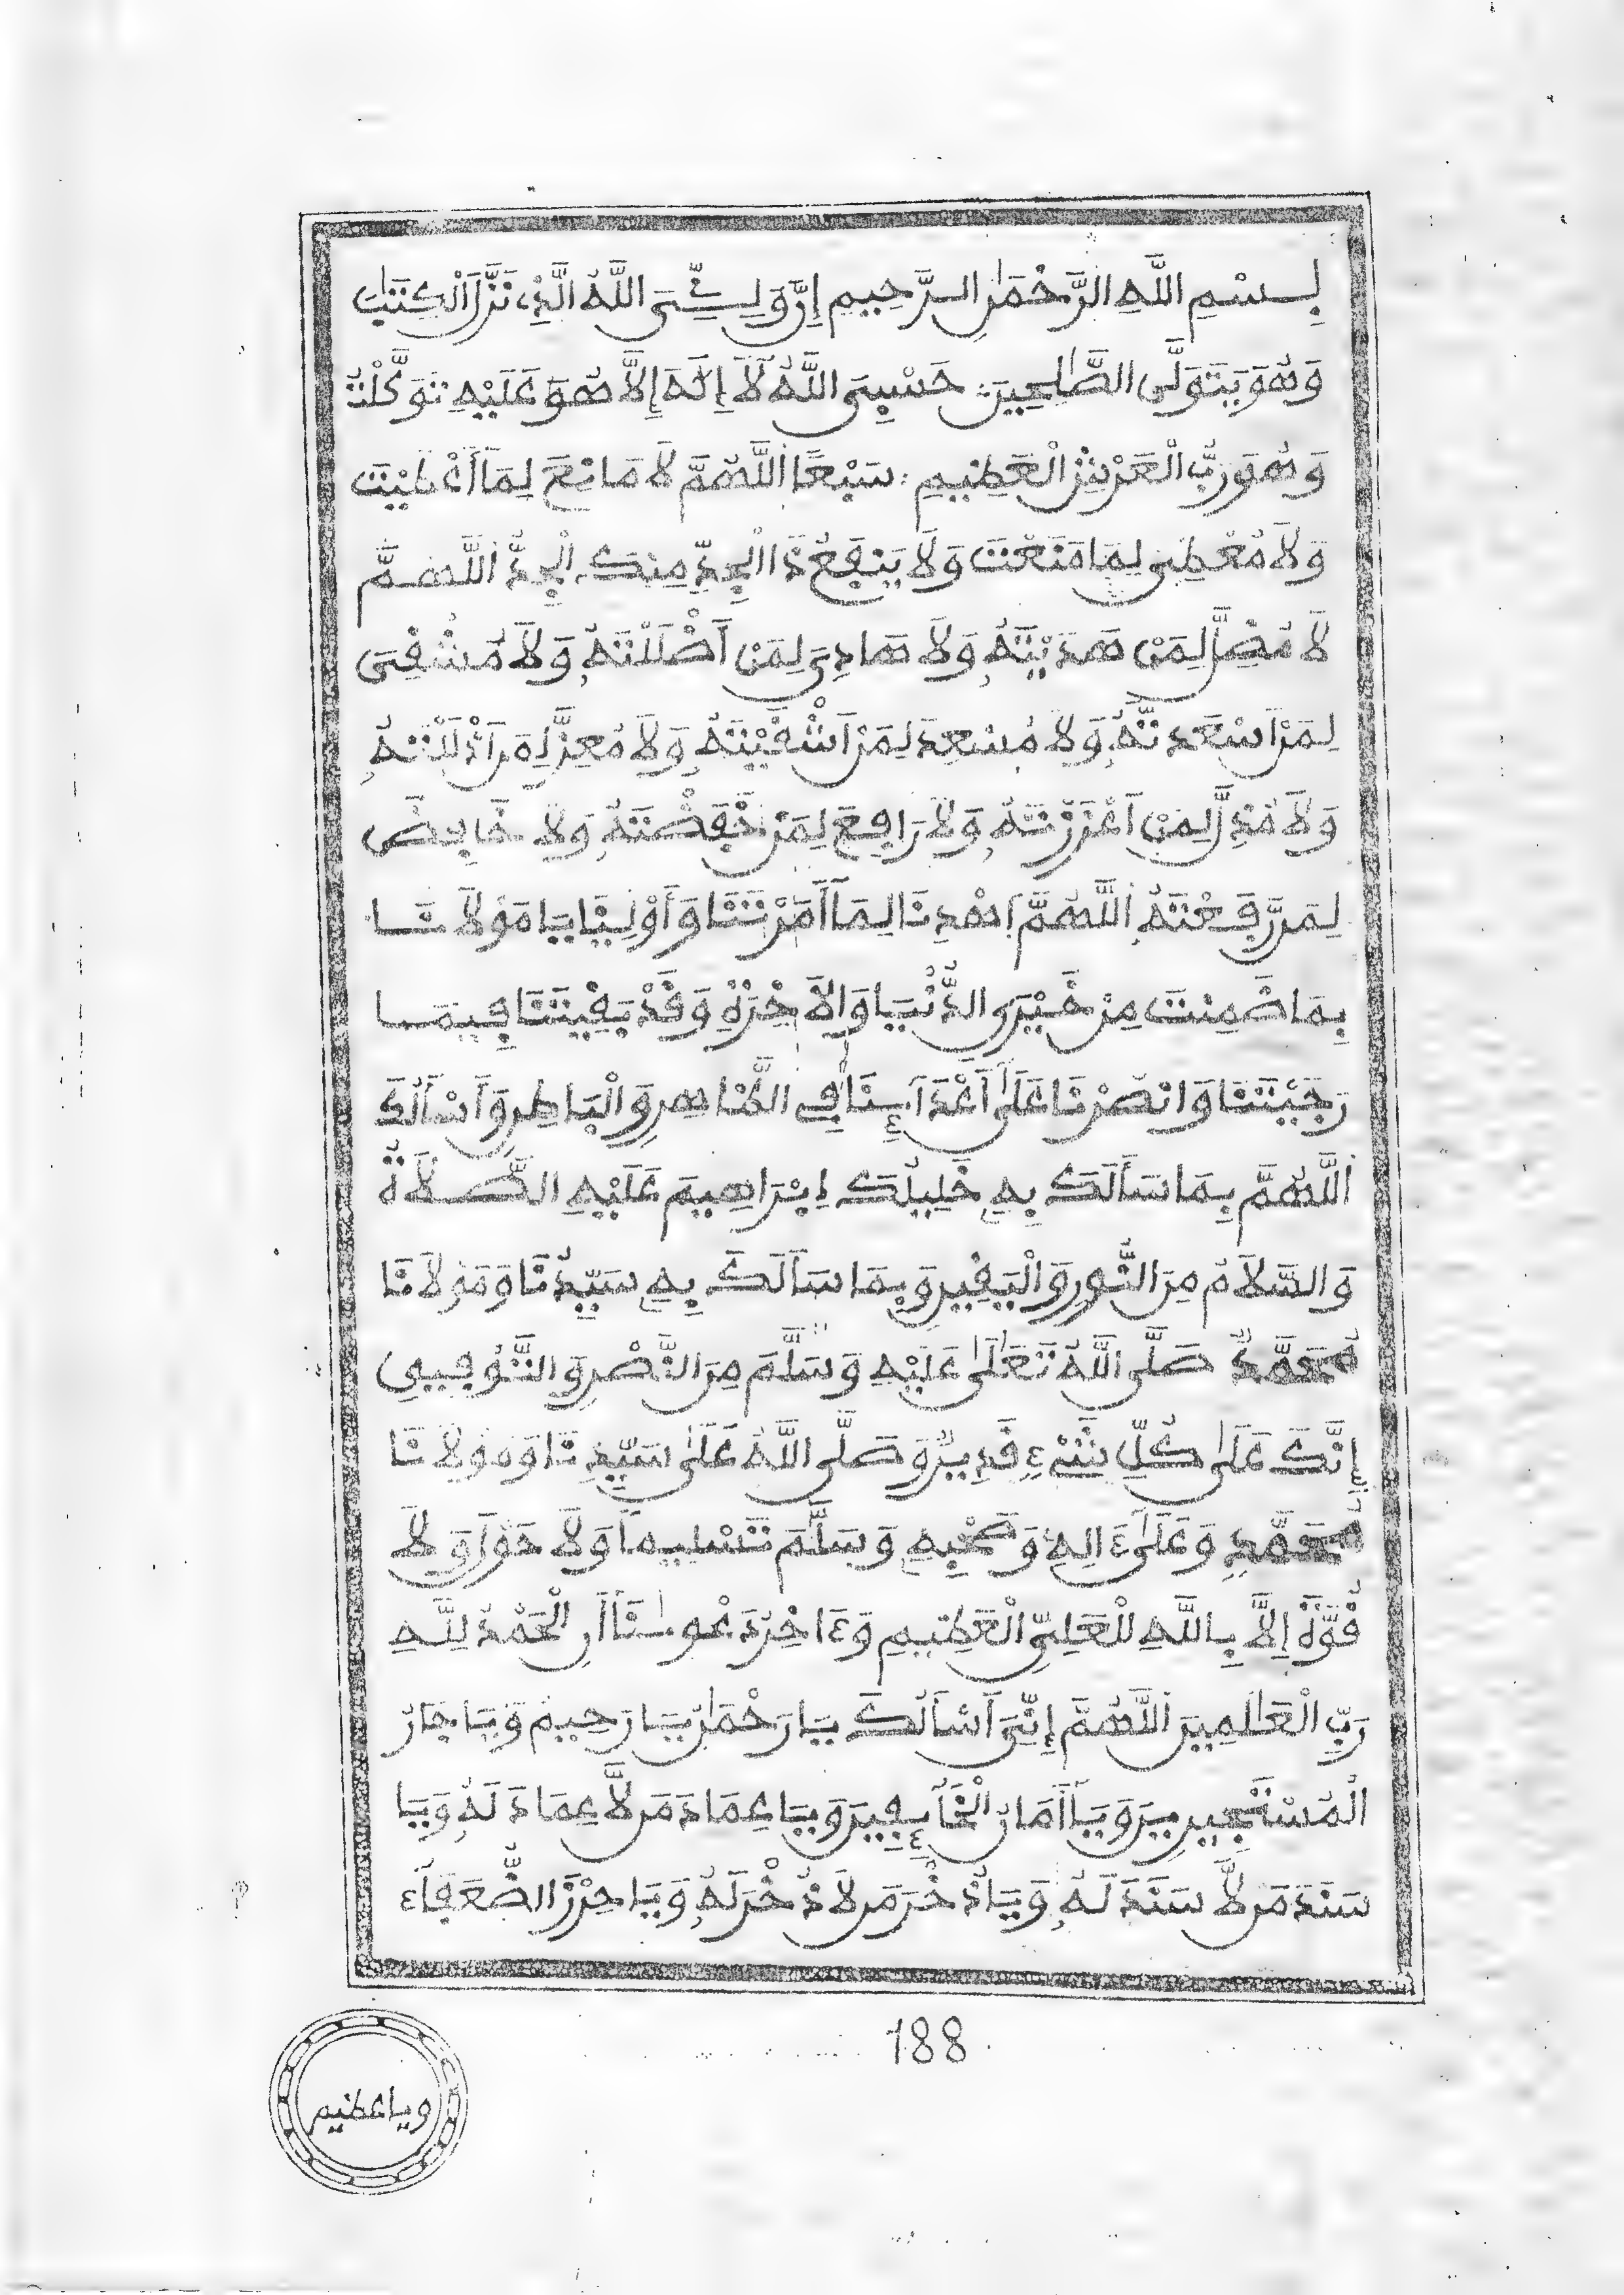 بِسْمِ اللَّهِ الرَّحْمَٰنِ الرَّحِيمِ إِنَّ وَلِيِّيَ اللَّهُ الَّذِي نَزَّلَ الْكِتَٰبَ
وَهُوَ يَتَوَلَّى الصَّٰلِحِينَ حَسْبِيَ اللَّهُ لَآ إِلَٰهَ إِلَّا هُوَ عَلَيْهِ تَوَكَّلْتُ
وَهُوَ رَبُّ الْعَرْشِ الْعَظِيمِ سَبْعًا اللَّهُمَّ لَا مَانِعَ لِمَآ أَعْطَيْتَ
وَلَا مُعْطِيَ لِمَا مَنَعْتَ وَلَا يَنفَعُ ذَا الْجَدِّ مِنكَ الْجَدُّ اللَّهُمَّ
لَا مُضِلَّ لِمَنْ هَدَيْتَهُ وَلَا هَادِيَ لِمَنْ أَضْلَلْتَهُ وَلَا مُشْقِيَ
لِمَنْ أَسْعَدتَّهُ وَلَا مُسْعِدَ لِمَنْ أَشْقَيْتَهُ وَلَا مُعِزَّ لِمَنْ أَذْلَلْتَهُ
وَلَا مُذِلَّ لِمَنْ أَعْزَزْتَهُ وَلَا رَافِعَ لِمَنْ خَفَضْتَهُ وَلَا خَافِضَ
لِمَن رَّفَعْتَهُ اللَّهُمَّ اهْدِنَا لِمَآ أَمَرْتَنَا وَأَوْلِنَا يَا مَوْلَانَا
بِمَا ضَمِنْتَ مِنْ خَيْرَيِ الدُّنْيَا وَالْآخِرَةِ وَقَدْ يَقِينَنَا فِيمَا
رَجَّيْتَنَا وَانصُرْنَا عَلَىٰ أَعْدَآئِنَا فِي الظَّاهِرِ وَالْبَاطِنِ وَأَسْأَلُكَ
اللَّهُمَّ بِمَا سَأَلَكَ بِهِ خَلِيلُكَ إِبْرَاهِيمَ عَلَيْهِ الصَّلَاةُ
وَالسَّلَامُ مِنَ النُّورِ وَالْيَقِينِ وَبِمَا سَأَلَكَ بِهِ سَيِّدُنَا وَمَوْلَانَا
مُحَمَّدٌ صَلَّى اللَّهُ تَعَالَىٰ عَلَيْهِ وَسَلَّمَ مِنَ النَّصْرِ وَالتَّوْفِيقِ
إِنَّكَ عَلَىٰ كُلِّ شَيْءٍ قَدِيرٌ وَصَلَّى اللَّهُ عَلَىٰ سَيِّدِنَا وَمَوْلَانَا
مُحَمَّدٍ وَعَلَىٰ ءَالِهِ وَصَحْبِهِ وَسَلَّمَ تَسْلِيمًا وَلَا حَوْلَ وَلَا
قُوَّةَ إِلَّا بِاللَّهِ الْعَلِيِّ الْعَظِيمِ وَءَاخِرُ دَعْوَىٰنَآ أَنِ الْحَمْدُ لِلَّهِ
رَبِّ الْعَٰلَمِينَ اللَّهُمَّ إِنِّيَ أَسْأَلُكَ يَا رَحْمَٰنُ يَا رَحِيمُ وَيَا جَارَ
الْمُسْتَجِيرِينَ وَيَآ أَمَانَ الْخَآئِفِينَ وَيَا عِمَادَ مَن لَّا عِمَادَ لَهُ وَيَا
سَنَدَ مَن لَّا سَنَدَ لَهُ وَيَا ذُخْرَ مَن لَا ذُخْرَ لَهُ وَيَا حِرْزَ الضُّعَفَآءِ
188
ويا عظيم